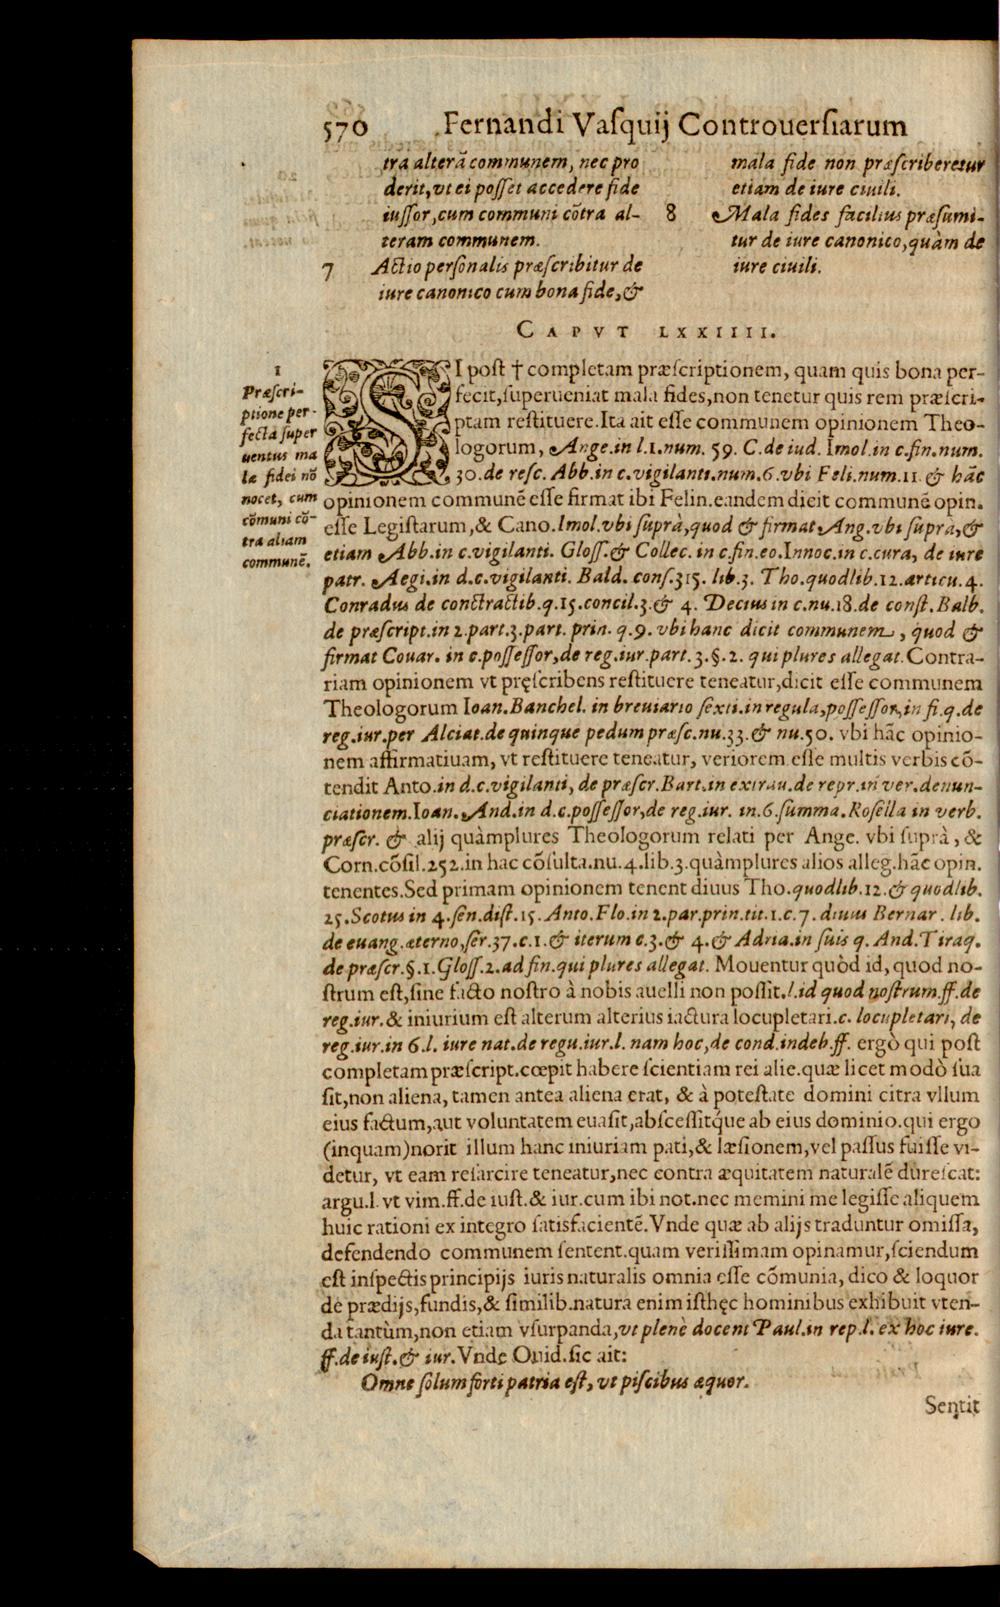 570 Fernandi Vasquij Controuersiarum
tra alterã communem, nec pro
derit, vt ei posset accedere fide
iussor, cum communi cõtra al-
teram communem.
7 Actio personalis præscribitur de
iure canonico cum bona fide, &
mala fide non præscriberetur
etiam de iure ciuili.
8 Mala fides facilius præsumi-
tur de iure canonico, quàm de
iure ciuili.
CAPVT LXXIIII.
1
Præscri-
ptione per-
fecta super
uentus ma
læ fidei nõ
nocet, cum
cõmuni cõ-
tra aliam
communẽ.
SI post † completam præscriptionem, quam quis bona per-
fecit, superueniat mala fides, non tenetur quis rem præscri-
ptam restituere. Ita ait esse communem opinionem Theo-
logorum, Ange. in l.1. num. 59. C. de iud. Imol. in c. fin. num.
30. de resc. Abb. in c. vigilanti. num. 6. vbi Feli. num. 11. & hãc
opinionem communẽ esse firmat ibi Felin. eandem dicit communẽ opin.
esse Legistarum, & Cano. Imol. vbi suprà, quod & firmat Ang. vbi suprà, &
etiam Abb. in c. vigilanti. Gloss. & Collec. in c. fin. eo. Innoc. in c. cura, de iure
patr. Aegi. in d.c. vigilanti. Bald. cons. 315. lib. 3. Tho. quodlib. 12. articu. 4.
Conradus de conctractib. q. 15. concil. 3. & 4. Decius in c. nu. 18. de const. Balb.
de præscript. in 2. part. 3. part. prin. q. 9. vbi hanc dicit communem, quod &
firmat Couar. in c. possessor, de reg. iur. part. 3. §. 2. qui plures allegat. Contra-
riam opinionem vt pręscribens restituere teneatur, dicit esse communem
Theologorum Ioan. Banchel. in breuiario sexti. in regula, possessor, in fi. q. de
reg. iur. per Alciat. de quinque pedum præsc. nu. 33. & nu. 50. vbi hãc opinio-
nem affirmatiuam, vt restituere teneatur, veriorem esse multis verbis cõ-
tendit Anto. in d.c. vigilanti, de præscr. Bart. in extrau. de repr. in ver. denun-
ciationem. Ioan. And. in d.c. possessor, de reg. iur. in. 6. summa. Rosella in verb.
præscr. & alij quàmplures Theologorum relati per Ange. vbi suprà, &
Corn. cõsil. 252. in hac cõsulta. nu. 4. lib. 3. quàmplures alios alleg. hãc opin.
tenentes. Sed primam opinionem tenent diuus Tho. quodlib. 12. & quodlib.
25. Scotus in 4. sen. dist. 15. Anto. Flo. in 2. par. prin. tit. 1. c. 7. diuus Bernar. lib.
de euang. æterno, ser. 37. c. 1. & iterum c. 3. & 4. & Adria. in suis q. And. Tiraq.
de præscr. §. 1. Gloss. 2. ad fin. qui plures allegat. Mouentur quòd id, quod no-
strum est, sine facto nostro à nobis auelli non possit. l. id quod nostrum. ff. de
reg. iur. & iniurium est alterum alterius iactura locupletari. c. locupletari, de
reg. iur. in 6. l. iure nat. de regu. iur. l. nam hoc, de cond. indeb. ff. ergò qui post
completam præscript. cœpit habere scientiam rei alie. quæ licet modò sua
sit, non aliena, tamen antea aliena erat, & à potestate domini citra vllum
eius factum, aut voluntatem euasit, abscessitq́ue ab eius dominio. qui ergo
(inquam) norit illum hanc iniuriam pati, & læsionem, vel passus fuisse vi-
detur, vt eam resarcire teneatur, nec contra æquitatem naturalẽ durescat:
argu. l. vt vim. ff. de iust. & iur. cum ibi not. nec memini me legisse aliquem
huic rationi ex integro satisfacientẽ. Vnde quæ ab alijs traduntur omissa,
defendendo communem sentent. quam verissimam opinamur, sciendum
est inspectis principijs iuris naturalis omnia esse cõmunia, dico & loquor
de prædijs, fundis, & similib. natura enim isthęc hominibus exhibuit vten-
da tantùm, non etiam vsurpanda, vt plenè docent Paul. in rep. l. ex hoc iure.
ff. de iust. & iur. Vnde Ouid. sic ait:
Omne solum forti patria est, vt piscibus æquor.
Sentit